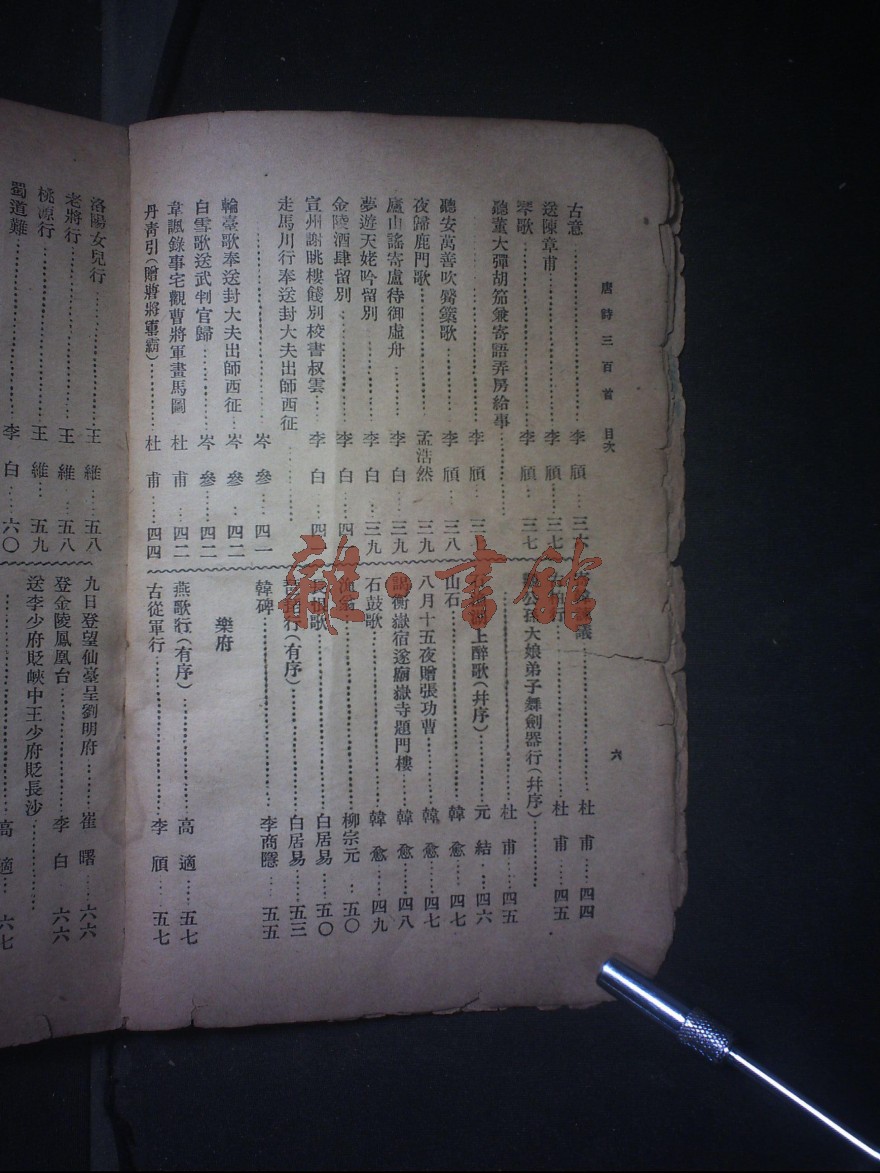 唐詩三百首 目次
六
古意 李頎
送陳章甫 李頎 三七
琴歌 李頎 三七
聽董大彈胡笳兼寄語弄房給事
李頎
聽安萬善吹觱篥歌 李頎 三八
夜歸鹿門歌 孟浩然 三九
廬山謠寄盧侍御虛舟 李白 三九
夢遊天姥吟留別 李白 三九
金陵酒肆留別 李白
宣州謝朓樓餞別校書叔雲 李白
走馬川行奉送封大夫出師西征
岑參 四一
輪臺歌奉送封大夫出師西征 岑參 四二
白雪歌送武判官歸 岑參 四二
韋諷錄事宅觀曹將軍畫馬圖 杜甫 四二
丹青引(贈 霸) 杜甫 四四
杜甫 四四
杜甫 四五
公孫大娘弟子舞劍器行(幷序)
杜甫 四五
上醉歌(幷序) 元結 四六
山石 韓愈 四七
八月十五夜贈張功曹 韓愈 四七
謁衡嶽宿遂廟嶽寺題門樓 韓愈 四八
石鼓歌 韓愈 四九
柳宗元 五〇
歌 白居易 五〇
行(有序) 白居易 五三
韓碑 李商隱 五五
樂府
燕歌行(有序) 高適 五七
古從軍行 李頎 五七
洛陽女兒行 王維 五八
老將行 王維 五八
桃源行 王維 五九
蜀道難 李白 六〇
九日登望仙臺呈劉明府 崔曙 六六
登金陵鳳凰台 李白 六六
送李少府貶峽中王少府貶長沙
高適 六七
雜·書館